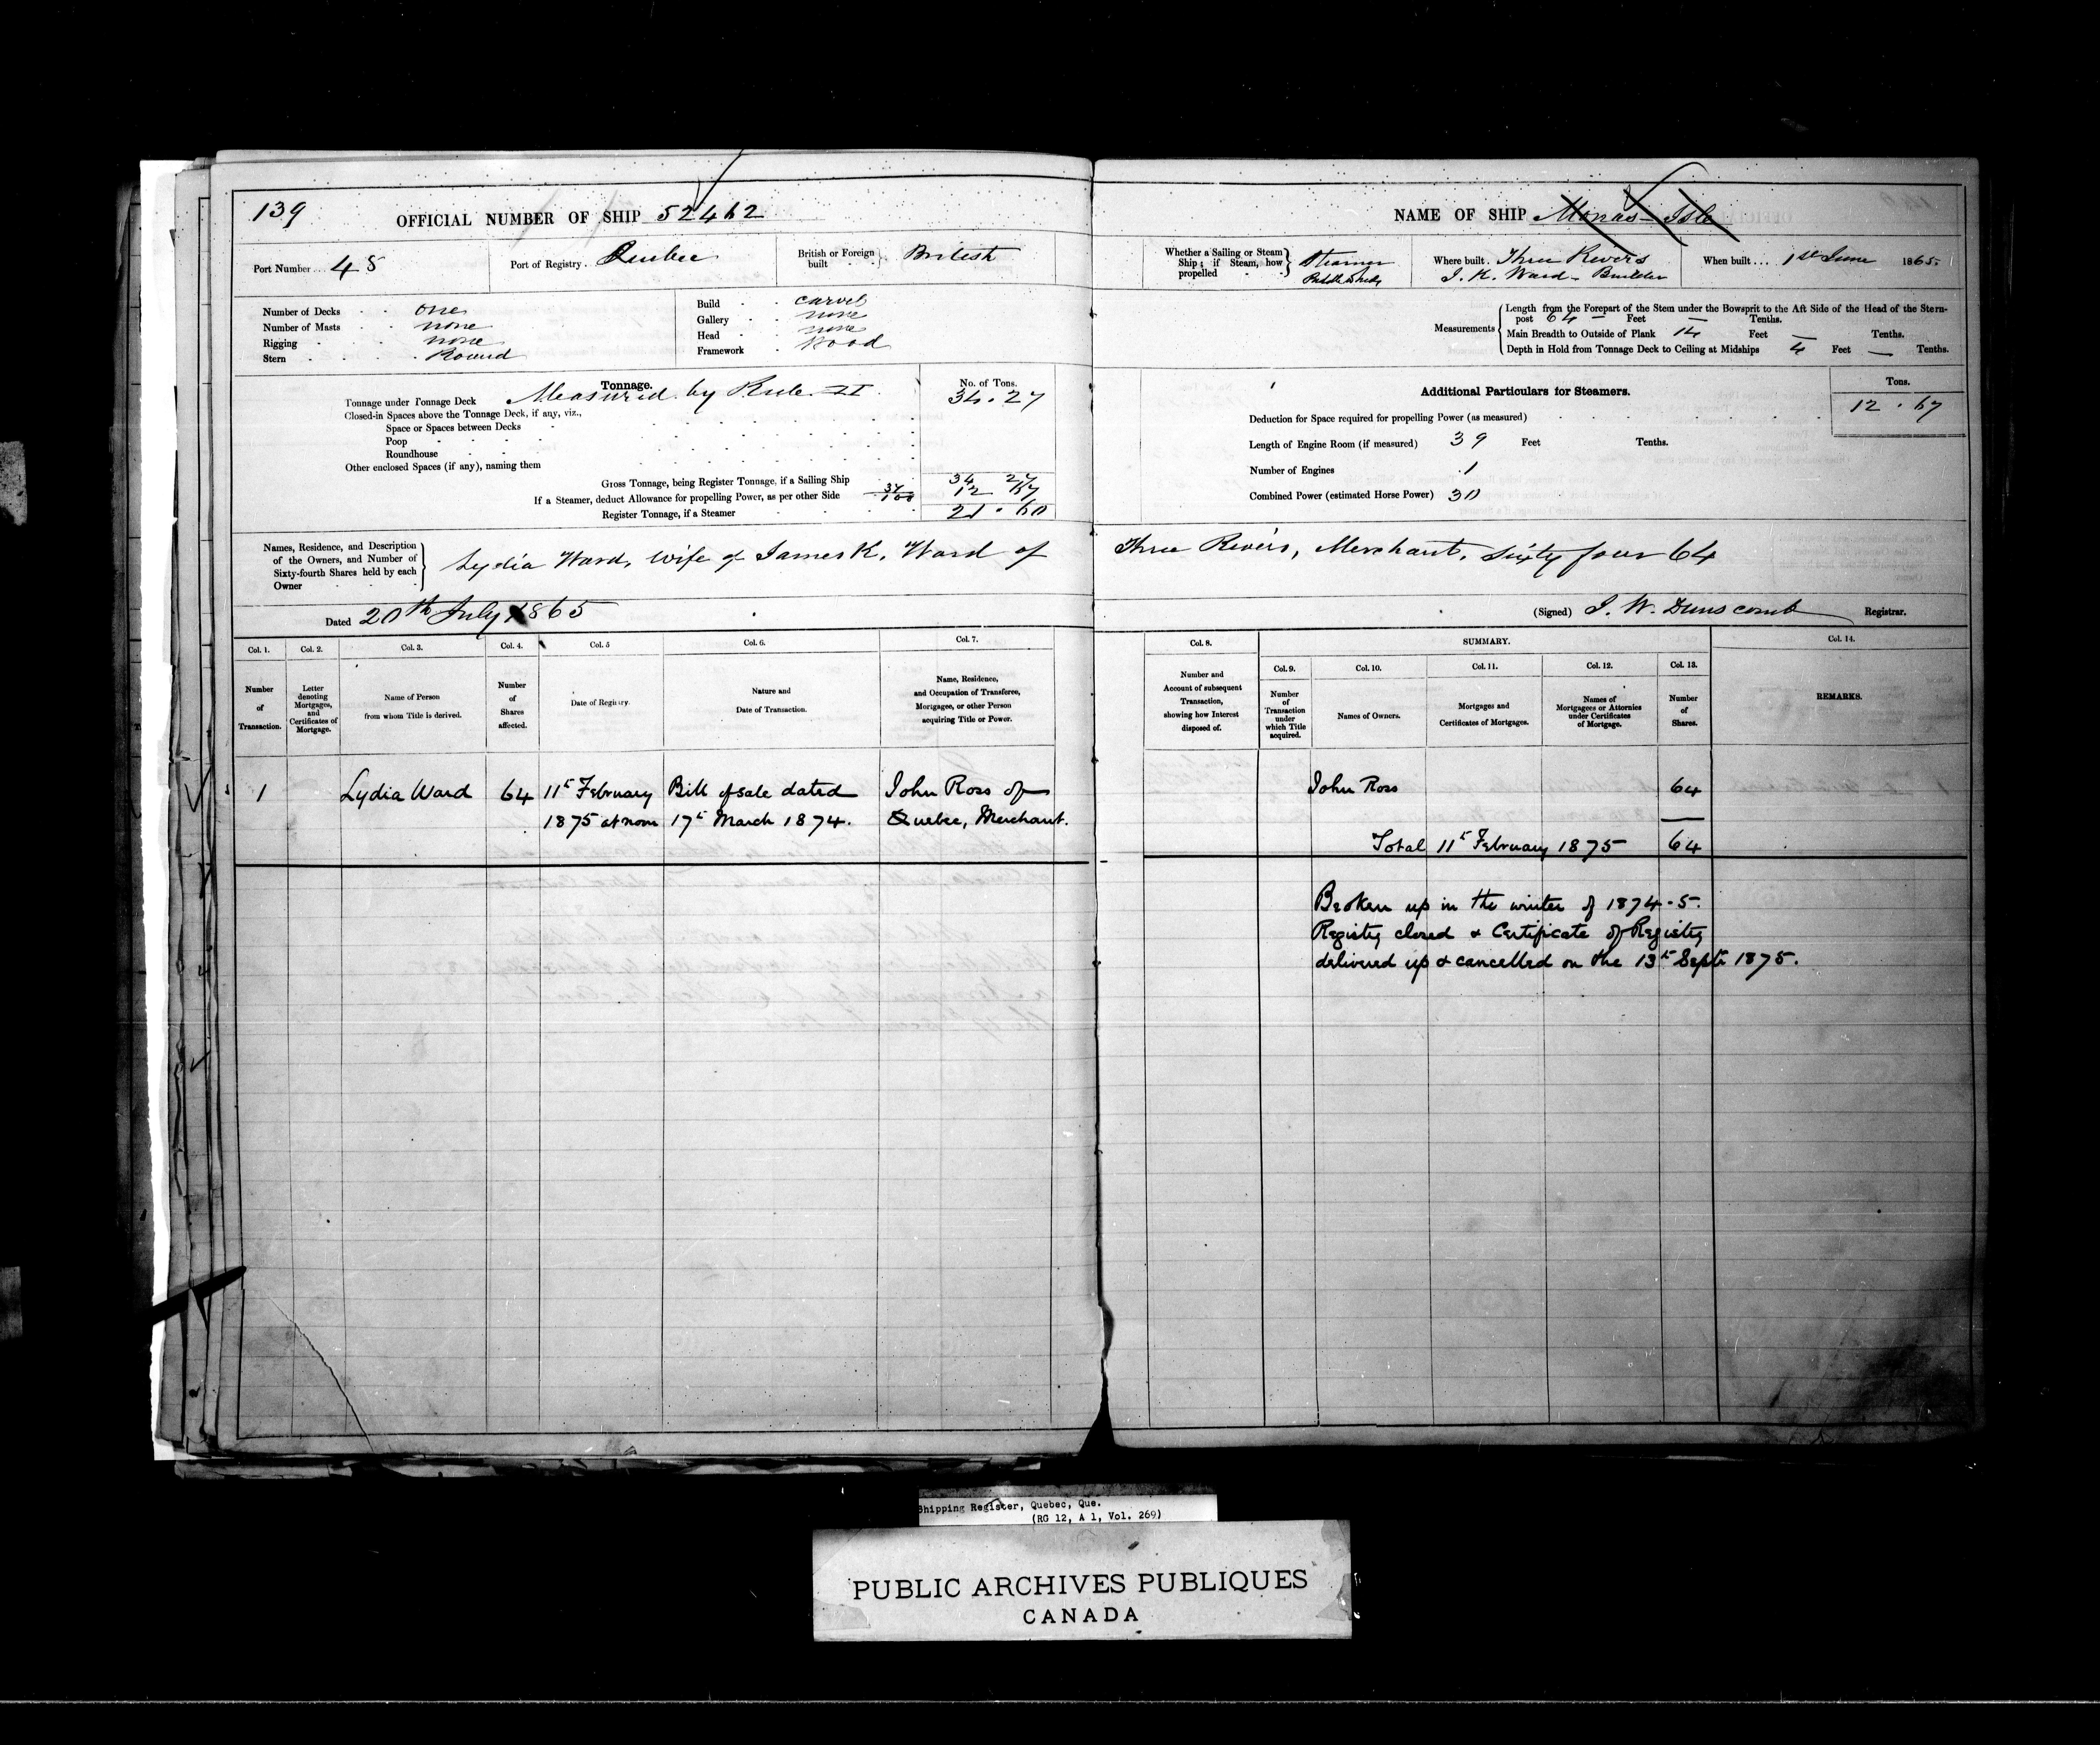 139
OFFICIAL NUMBER OF SHIP 52462
NAME OF SHIP Monas Isle
Port Number... 45
Port of Registry. Quebec
British or Foreign built } British
Whether a Sailing or Steam Ship; if Steam, how propelled } Steamer Paddlewheels
Where built. Three Rivers
J. K. Ward - Builder
When built... 1st June 1865.
Number of Decks one
Number of Masts none
Rigging none
Stern Round
Build carvel
Gallery none
Head none
Framework Wood
Measurements
Length from the Forepart of the Stem under the Bowsprit to the Aft Side of the Head of the Stern-
post 64 Feet — Tenths.
Main Breadth to Outside of Plank 14 Feet — Tenths.
Depth in Hold from Tonnage Deck to Ceiling at Midships 4 Feet — Tenths.
Tonnage.
No. of Tons.
Tonnage under Tonnage Deck Measured by Rule II. 34.27
Closed-in Spaces above the Tonnage Deck, if any, viz.,
Space or Spaces between Decks
Poop
Roundhouse
Other enclosed Spaces (if any), naming them
Gross Tonnage, being Register Tonnage, if a Sailing Ship 34 27
If a Steamer, deduct Allowance for propelling Power, as per other Side 37/100 12 67
Register Tonnage, if a Steamer 21.60
Additional Particulars for Steamers.
Tons.
Deduction for Space required for propelling Power (as measured) 12.67
Length of Engine Room (if measured) 39 Feet Tenths.
Number of Engines 1
Combined Power (estimated Horse Power) 30
Names, Residence, and Description
of the Owners, and Number of
Sixty-fourth Shares held by each
Owner
Lydia Ward, wife of James K. Ward of Three Rivers, Merchant, Sixty four 64
Dated 20th July 1865
(Signed) J. W. Dunscomb Registrar.
Col. 1.
Number
of
Transaction.
Col. 2.
Letter
denoting
Mortgages,
and
Certificates of
Mortgage.
Col. 3.
Name of Person
from whom Title is derived.
Col. 4.
Number
of
Shares
affected.
Col. 5
Date of Registry.
Col. 6.
Nature and
Date of Transaction.
Col. 7.
Name, Residence,
and Occupation of Transferee,
Mortgagee, or other Person
acquiring Title or Power.
Col. 8.
Number and
Account of subsequent
Transaction,
showing how Interest
disposed of.
SUMMARY.
Col. 9.
Number
of
Transaction
under
which Title
acquired.
Col. 10.
Names of Owners.
Col. 11.
Mortgages and
Certificates of Mortgages.
Col. 12.
Names of
Mortgagees or Attornies
under Certificates
of Mortgage.
Col. 13.
Number
of
Shares.
Col. 14.
REMARKS.
1 Lydia Ward 64 11th February Bill of sale dated John Ross of John Ross 64
1875 at noon 17th March 1874. Quebec, Merchant.
Total 11th February 1875 64
Broken up in the winter of 1874-5.
Registry closed & Certificate of Registry
delivered up & cancelled on the 13th Septr 1875.
Shipping Register, Quebec, Que.
(RG 12, A 1, Vol. 269)
PUBLIC ARCHIVES PUBLIQUES
CANADA